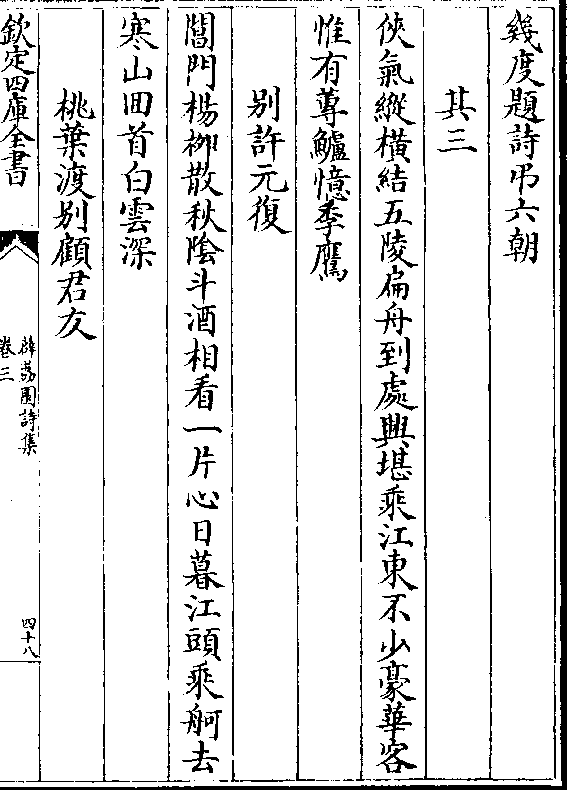 幾度題詩弔六朝
其三
俠氣縱橫結五陵扁舟到處興堪乘江東不少豪華客
惟有蓴鱸憶季鷹
別許元復
閶門楊柳散秋陰斗酒相看一片心日暮江頭乘舸去
寒山回首白雲深
桃葉渡別顧君友
欽定四庫全書
薜荔園詩集
卷三
四十八